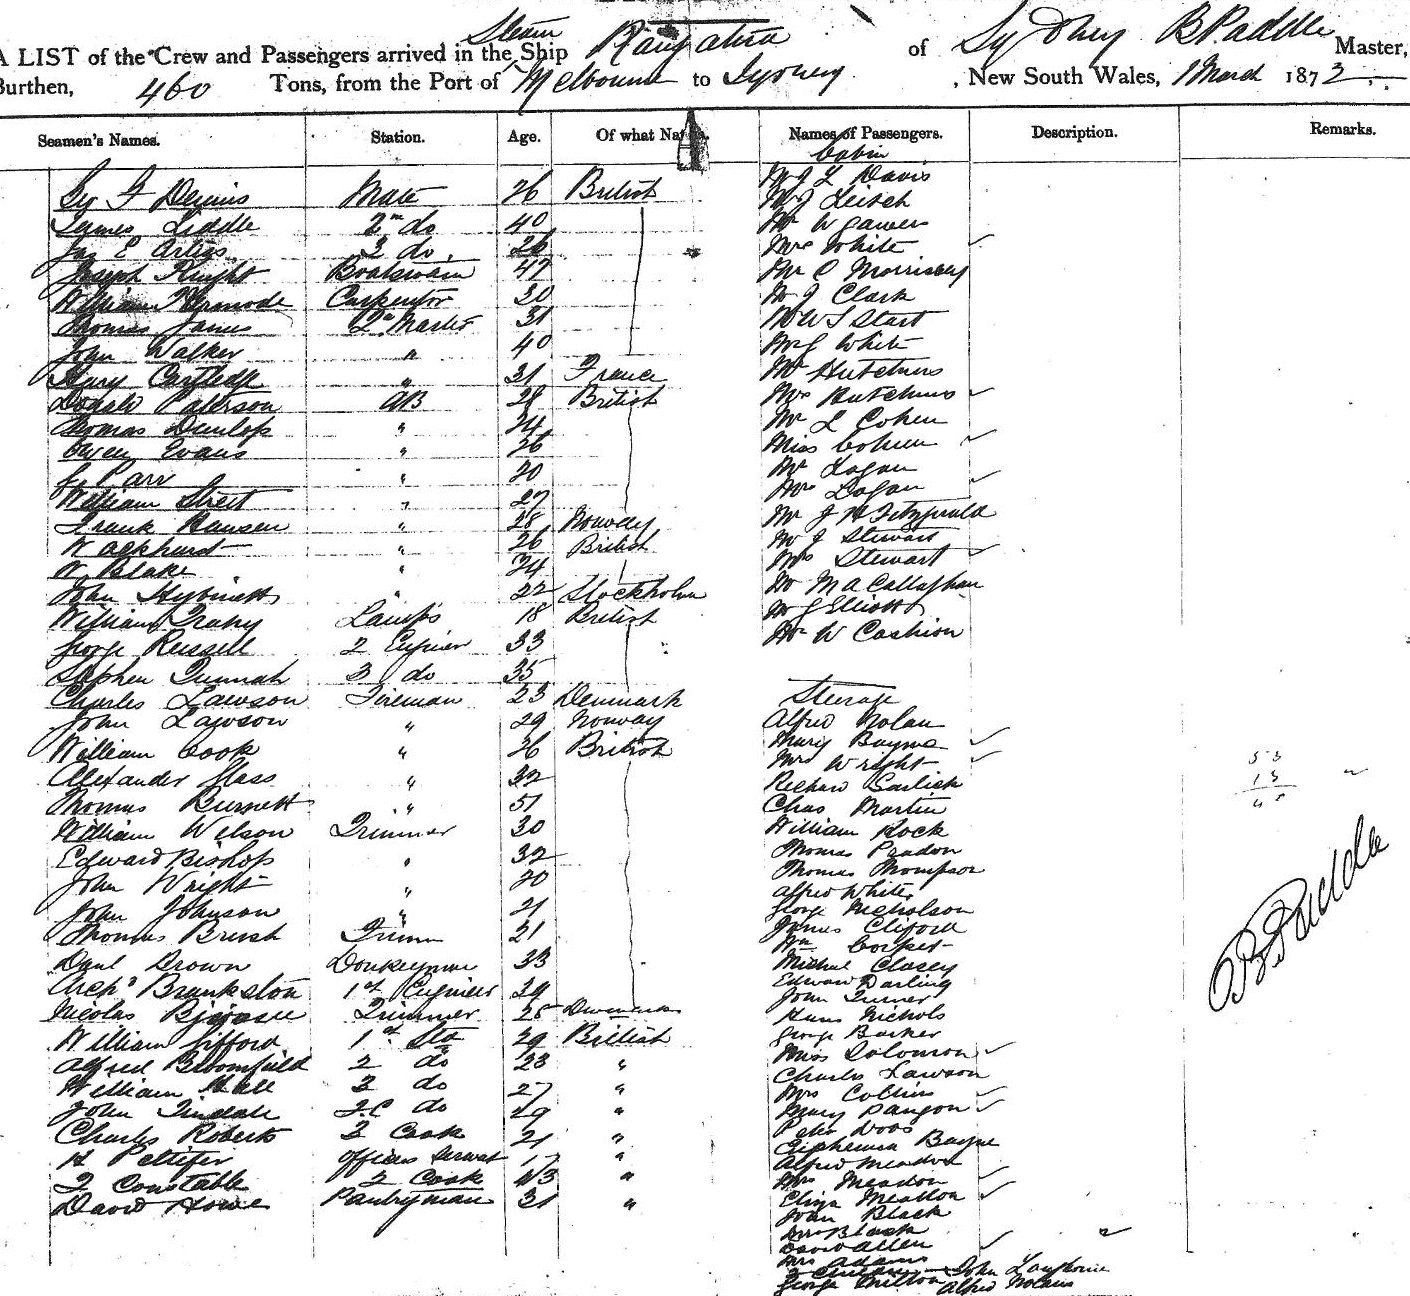 Steam
A LIST of the Crew and Passengers arrived in the Ship Rangatira of Sydney B Paddle Master,
Burthen, 460 Tons, from the Port of Melbourne to Sydney, New South Wales, 1 March 1873
Seamen's Names. Station. Age. Of what Nation. Names of Passengers. Description. Remarks.
Cabin
Dennis Mate 26 British
James Liddle 2nd do 40
Jas E 3 do 26
Joseph Knight Boatswain 47
William Carpenter 30
Thomas James 31
John Walker " 40
" 31 France
Donald Paterson AB 28 British
Thomas Dunlop " 24
Owen Evans " 26
J Parr " 20
William Street " 27
Frank Hansen " 28 Norway
W " 26 British
W Blake " 24
John " 22 Stockholm
William Lamps 18 British
George Russell 2 Engineer 33
Stephen 3 do 35
Charles Lawson Fireman 23 Denmark
John Lawson " 29 Norway
William Cook " 26 British
Alexander Glass " 32
Thomas Burnett " 51
William Wilson Trimmer 30
Edward Bishop " 32
John Wright " 20
John Johnson " 21
Thomas Brush 21
Danl Brown Donkeyman 33
Archd Brankston 1st Engineer 39
Nicolas Trimmer 25
William Gifford 1st Std 29 British
Alfred Bloomfield 2 do 23 "
William Hall 3 do 27 "
John Tindale F.C do 29 "
Charles Roberts 3 Cook 21 "
H Pettifer Officers Servant 17 "
Constable 2 Cook 43 "
David Howe Pantryman 31 "
Mr J L Davis
Mr J Leitch
Mr W Gawer
Mrs White
Mr C Morrissey
Mr J Clark
Mr W S Start
White
Mr Hutchins
Mrs Hutchins
Mr L Cohen
Miss Cohen
Mr Logan
Mrs Logan
Mr J H Fitzgerald
Mr J Stewart
Mrs Stewart
Mr M A Callaghan
Mr J Elliott
Mr W Cashion
Steerage
Alfred Nolan
Mary Bayne
Mrs Wright
Richard
Chas Martin
William Rock
Thomas
Thomas Thompson
Alfred White
George Nicholson
James Clifford
Wm
Michael Clasey
Edward Darling
John Turner
Hans Nichols
George Barker
Miss Solomon
Charles Lawson
Mrs Collins
Mary
Peter
Euphemia Bayne
Alfred Meadon
Mrs Meadon
Eliza Meadon
John Black
Mrs Black
David Allen
Mrs Adams
John
George Milton Alfred
53
13
B Paddle